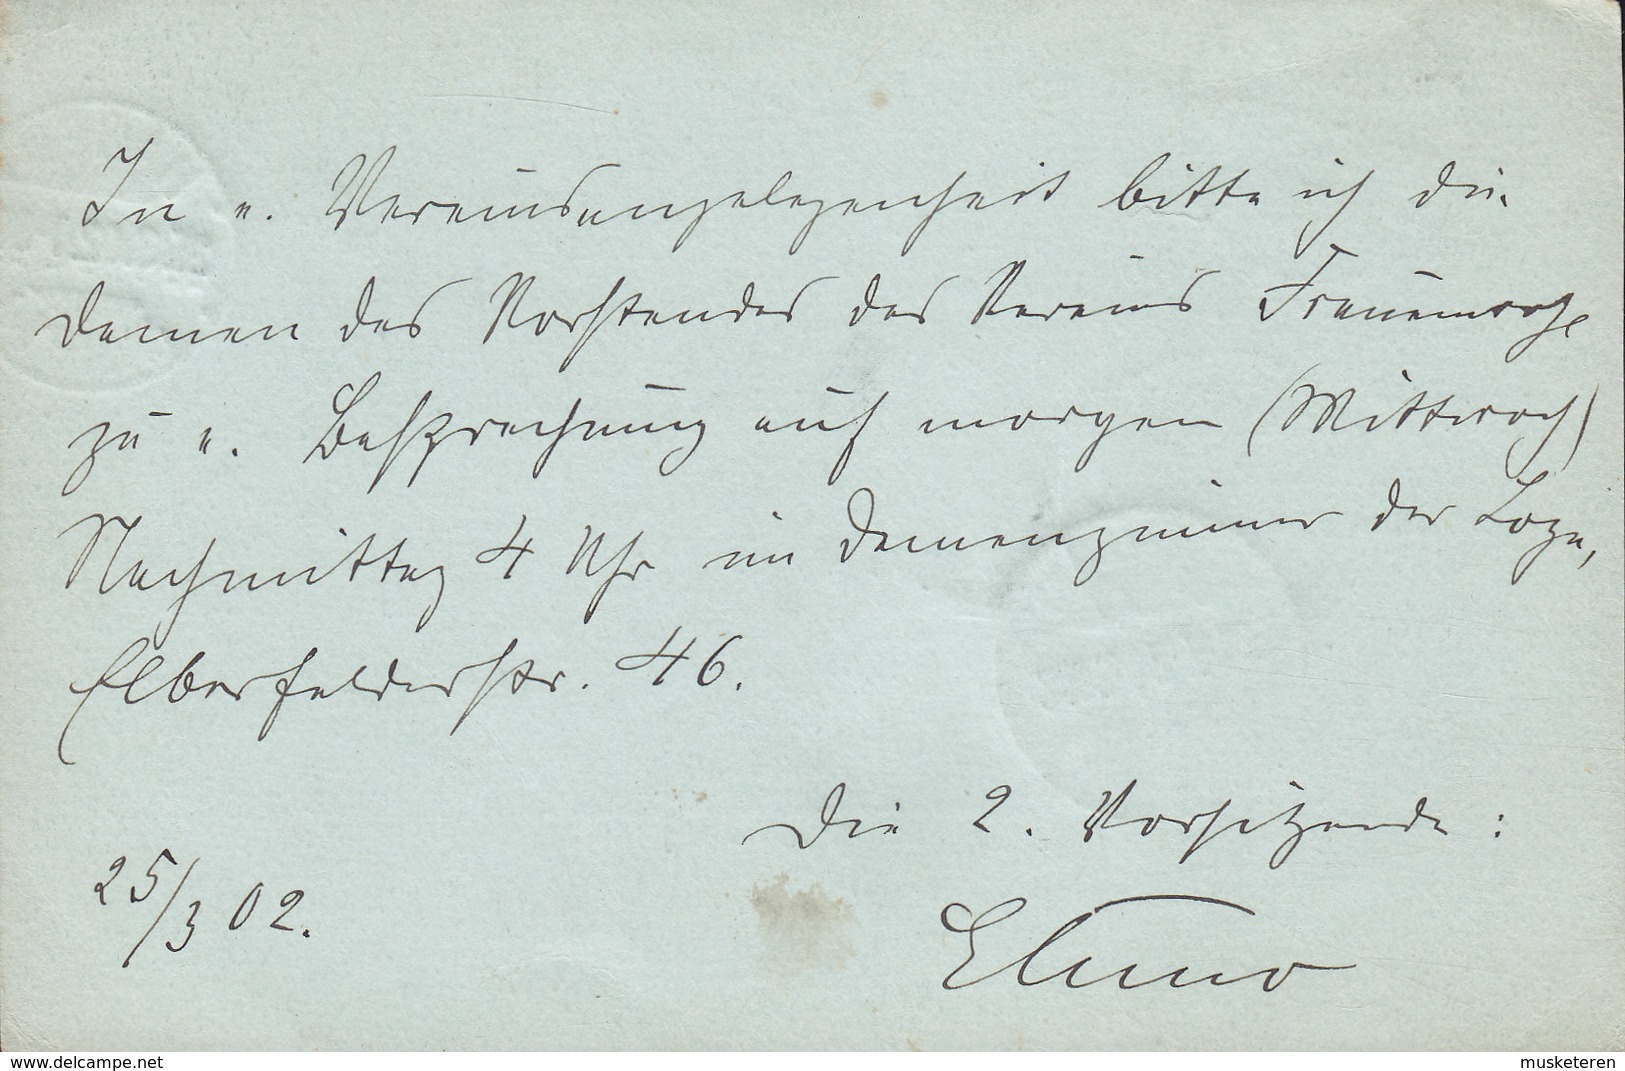 In e. Vereinsangelegenheit bitte ich die
Damen des Vorstandes des Vereins Frauenwohl
zu e. Besprechung auf morgen (Mittwoch)
Nachmittag 4 Uhr im Damenzimmer der Loge,
Elberfelderstr. 46.
Die 2. Vorsitzende:
25/3 02.
www.delcampe.net
musketeren